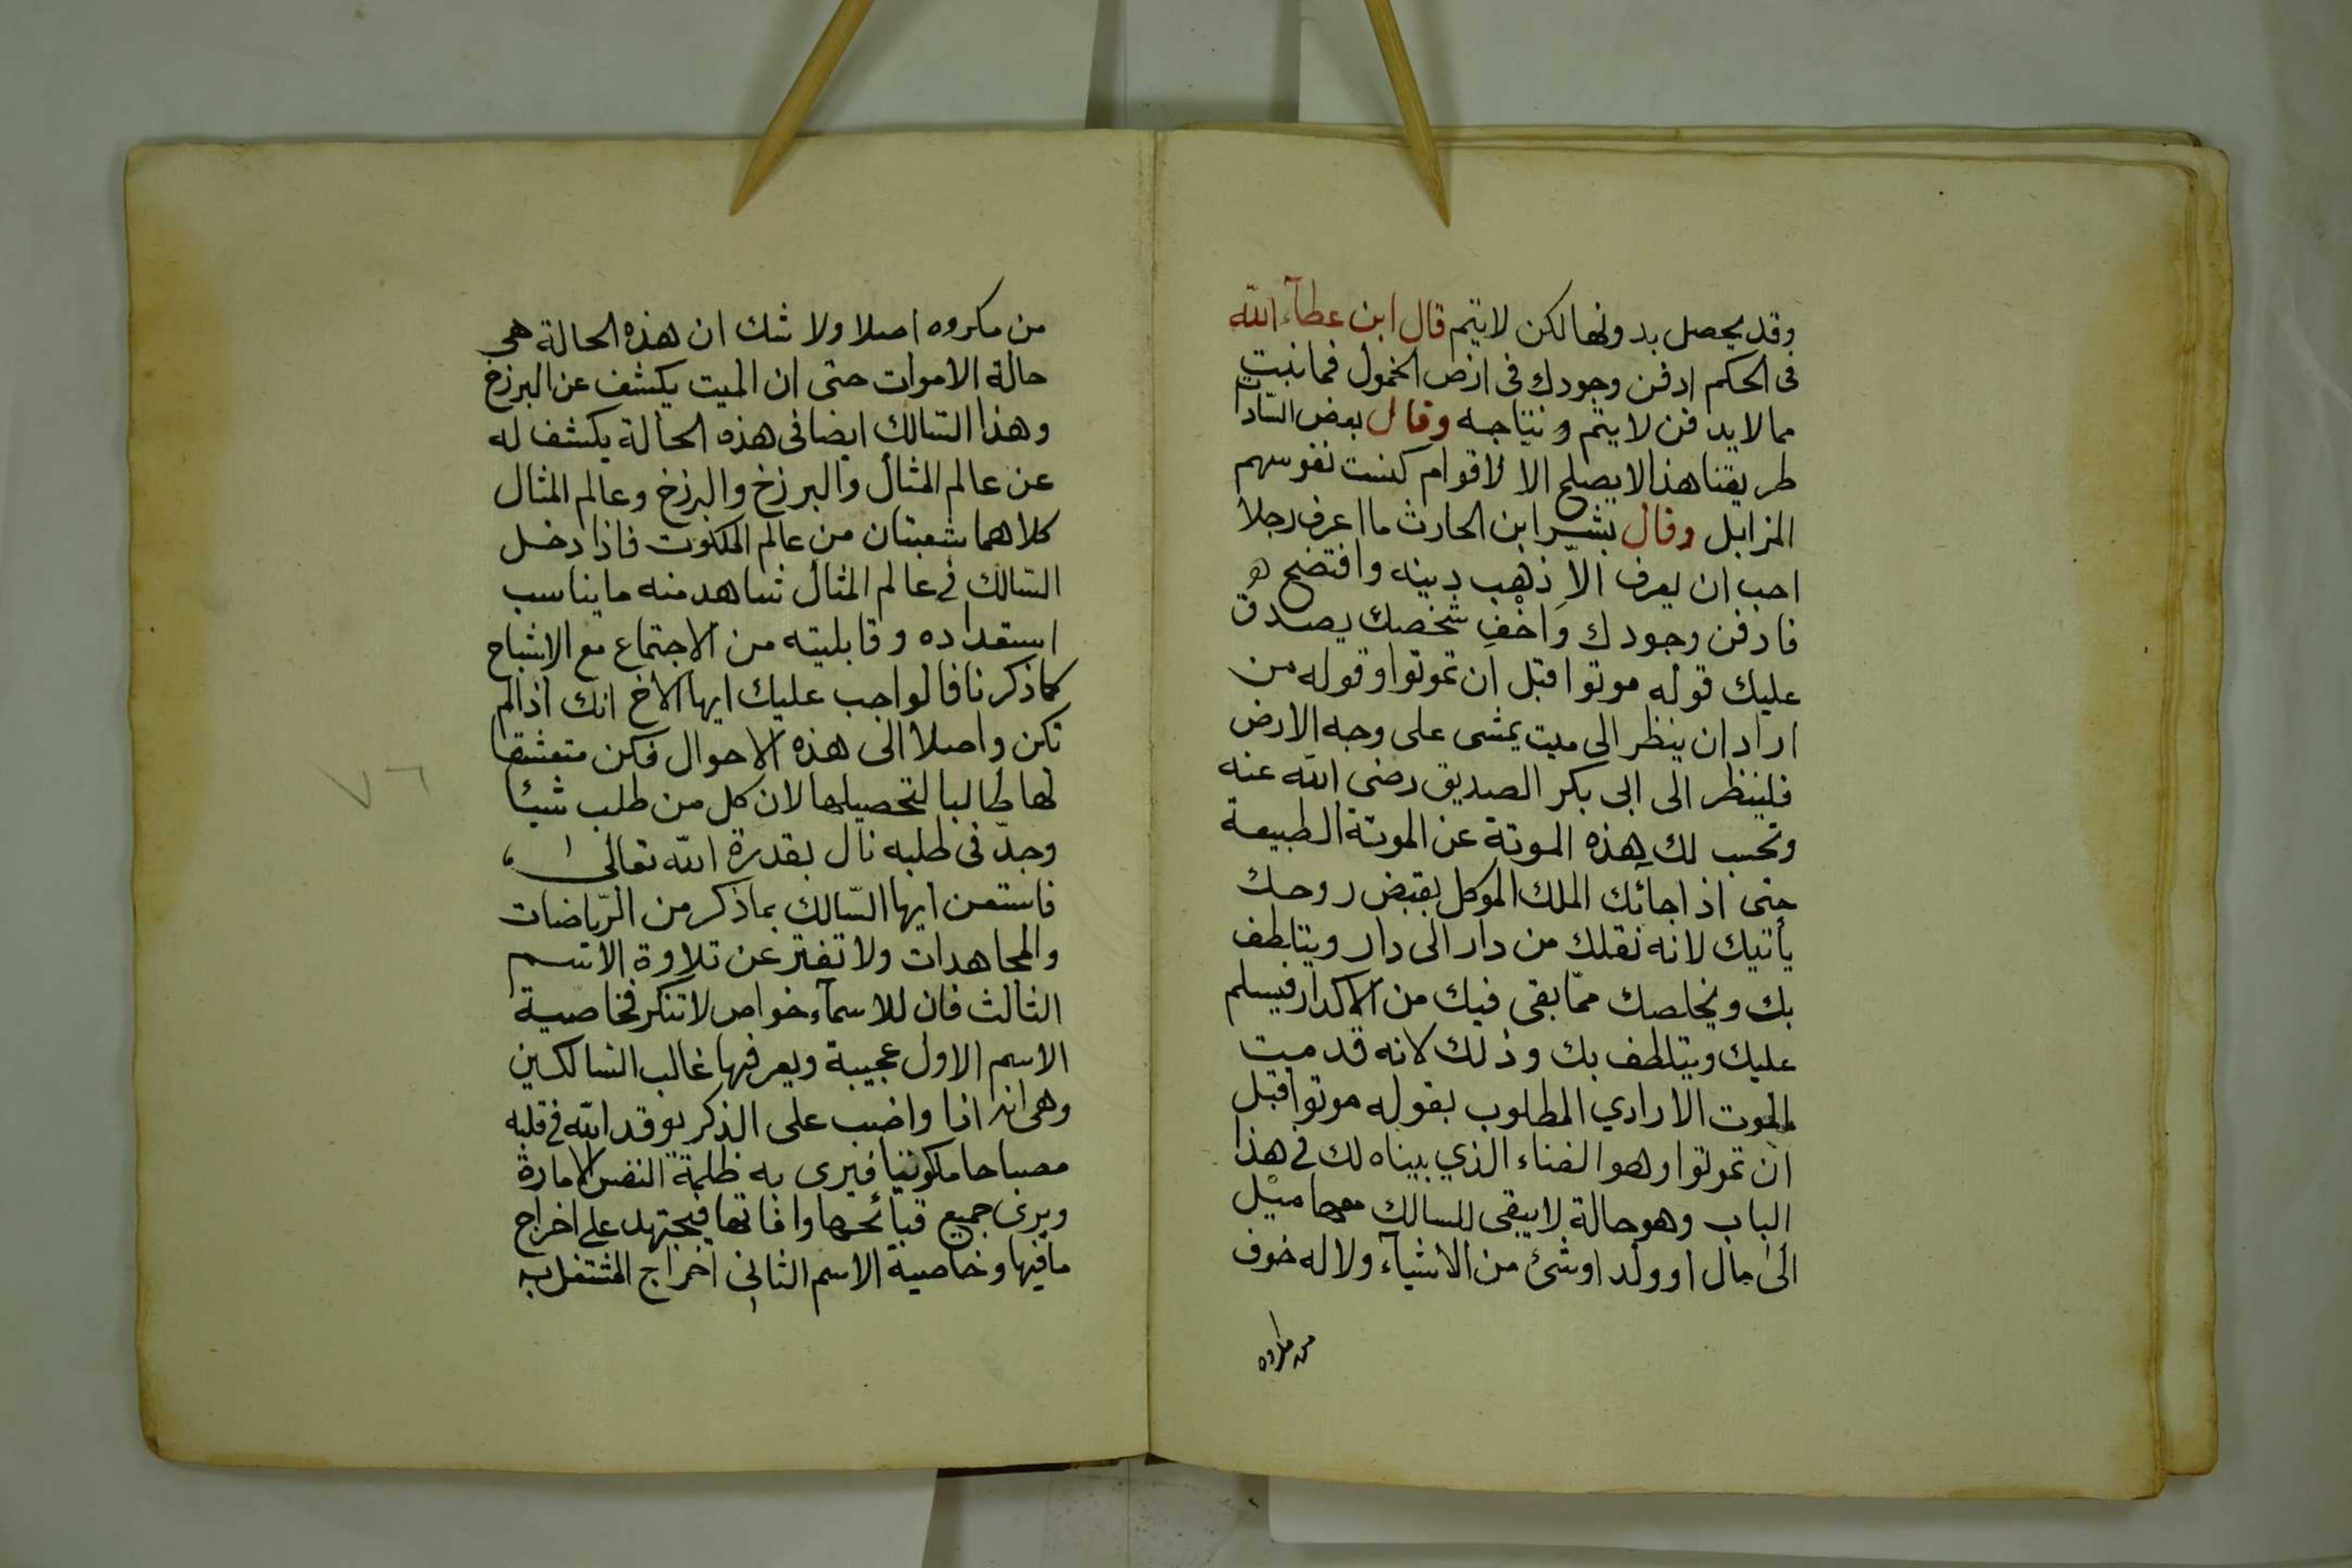 وقد يحصل بدونها لكن لا يتم قال ابن عطآء الله
فى الحكم ادفن وجودك فى ارض الخمول فما نبت
مما لا يدفن لا يتم و نتاجه وقال بعض السادات
طريقنا هذا لا يصلح الا لاقوام كنست نفوسهم
المزابل وقال بشر ابن الحارث ما اعرف رجلا
احب ان يعرف الا ذهب دينه وافتضح هو
فادفن وجودك واخف شخصك يصدق
عليك قوله موتوا قبل ان تموتوا وقوله من
اراد ان ينظر الى ميت يمشى على وجه الارض
فلينظر الى ابى بكر الصديق رضى الله عنه
وتحسب لك هذه الموتة عن الموتة الطبيعة
حتى اذا جائك الملك الموكل بقبض روحك
يأتيك لانه نقلك من دار الى دار ويتلطف
بك ويخلصك مما بقى فيك من الاكدار فيسلم
عليك ويتلطف بك وذلك لانه قد ميت
الموت الارادي المطلوب بقوله موتوا قبل
ان تموتوا وهو الفناء الذي بيناه لك فى هذا
الباب وهو حالة لا يبقى للسالك معها ميل
الى مال او ولد او شئ من الاشيآء ولا له خوف
من مكروه
من مكروه اصلا ولا شك ان هذه الحالة هى
حالة الاموات حتى ان الميت يكشف عن البرزخ
وهذا السالك ايضا فى هذه الحالة يكشف له
عن عالم المثال والبرزخ والبرزخ وعالم المثال
كلاهما شعبتان من عالم الملكوت فاذا دخل
السالك فى عالم المثال شاهد منه ما يناسب
استعداده وقابليته من الاجتماع مع الاشباح
كما ذكرنا فالواجب عليك ايها الاخ انك اذا لم
تكن واصلا الى هذه الاحوال فكن متعشقا
لها طالبا لتحصيلها لان كل من طلب شيئا
وجدّ فى طلبه نال بقدرة الله تعالى
فاستعن ايها السّالك بما ذكر من الرّياضات
والمجاهدات ولا تفتر عن تلاوة الاسم
الثالث فان للاسمآء خواص لا تنكر فخاصية
الاسم الاول عجيبة ويعرفها غالب السالكين
وهى انه اذا واضب على الذكر يوقد الله فى قلبه
مصباحا ملكوتيا فيرى به ظلمة النفس الامارة
ويرى جميع قبائحها وافاتها فيجتهد على اخراج
ما فيها وخاصية الاسم الثانى اخراج المشتغل به
٧٦